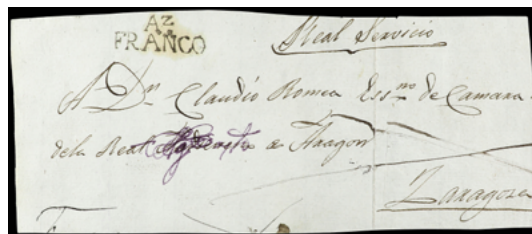 Az.
FRANCO
Real Servicio
A Dn. Claudio Romea Essno. de Camara
dela Real de Aragon
Zaragoza